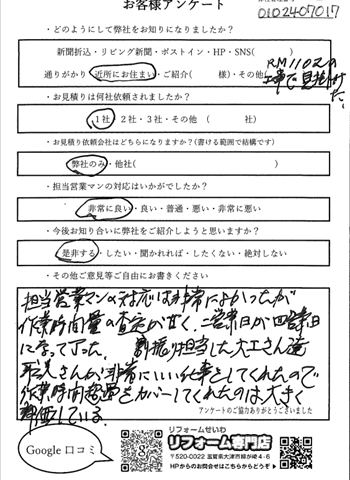 お客様アンケート
0102407017
・どのようにして弊社をお知りになりましたか？
新聞折込・リビング新聞・ポストイン・HP・SNS(　　　)
通りがかり・近所にお住まい・ご紹介(　　　様)・その他(
RM1102の
工事で見掛けた。
・お見積りは何社依頼されましたか？
1社・2社・3社・その他　(　　　社)
・お見積り依頼会社はどちらになりますか？(書ける範囲で結構です)
弊社のみ・他社(　　　)
・担当営業マンの対応はいかがでしたか？
非常に良い・良い・普通・悪い・非常に悪い
・今後お知り合いに弊社をご紹介しようと思いますか？
是非する・したい・聞かれれば・したくない・絶対しない
・その他ご意見等ご自由にお書きください
担当営業マンの対応は非常によかったが
作業時間量の査定が甘く、二営業日が四営業日
になって了った。割振り担当した大工さん達
職人さんが非常にいい仕事をしてくれたので
作業時間超過をカバーしてくれたのは大きく
評価している。
アンケートのご協力ありがとうございました
Google 口コミ
リフォームせいわ
リフォーム専門店
〒520-0022 滋賀県大津市柳が崎4-6
HPからのお問合せはこちらからどうぞ